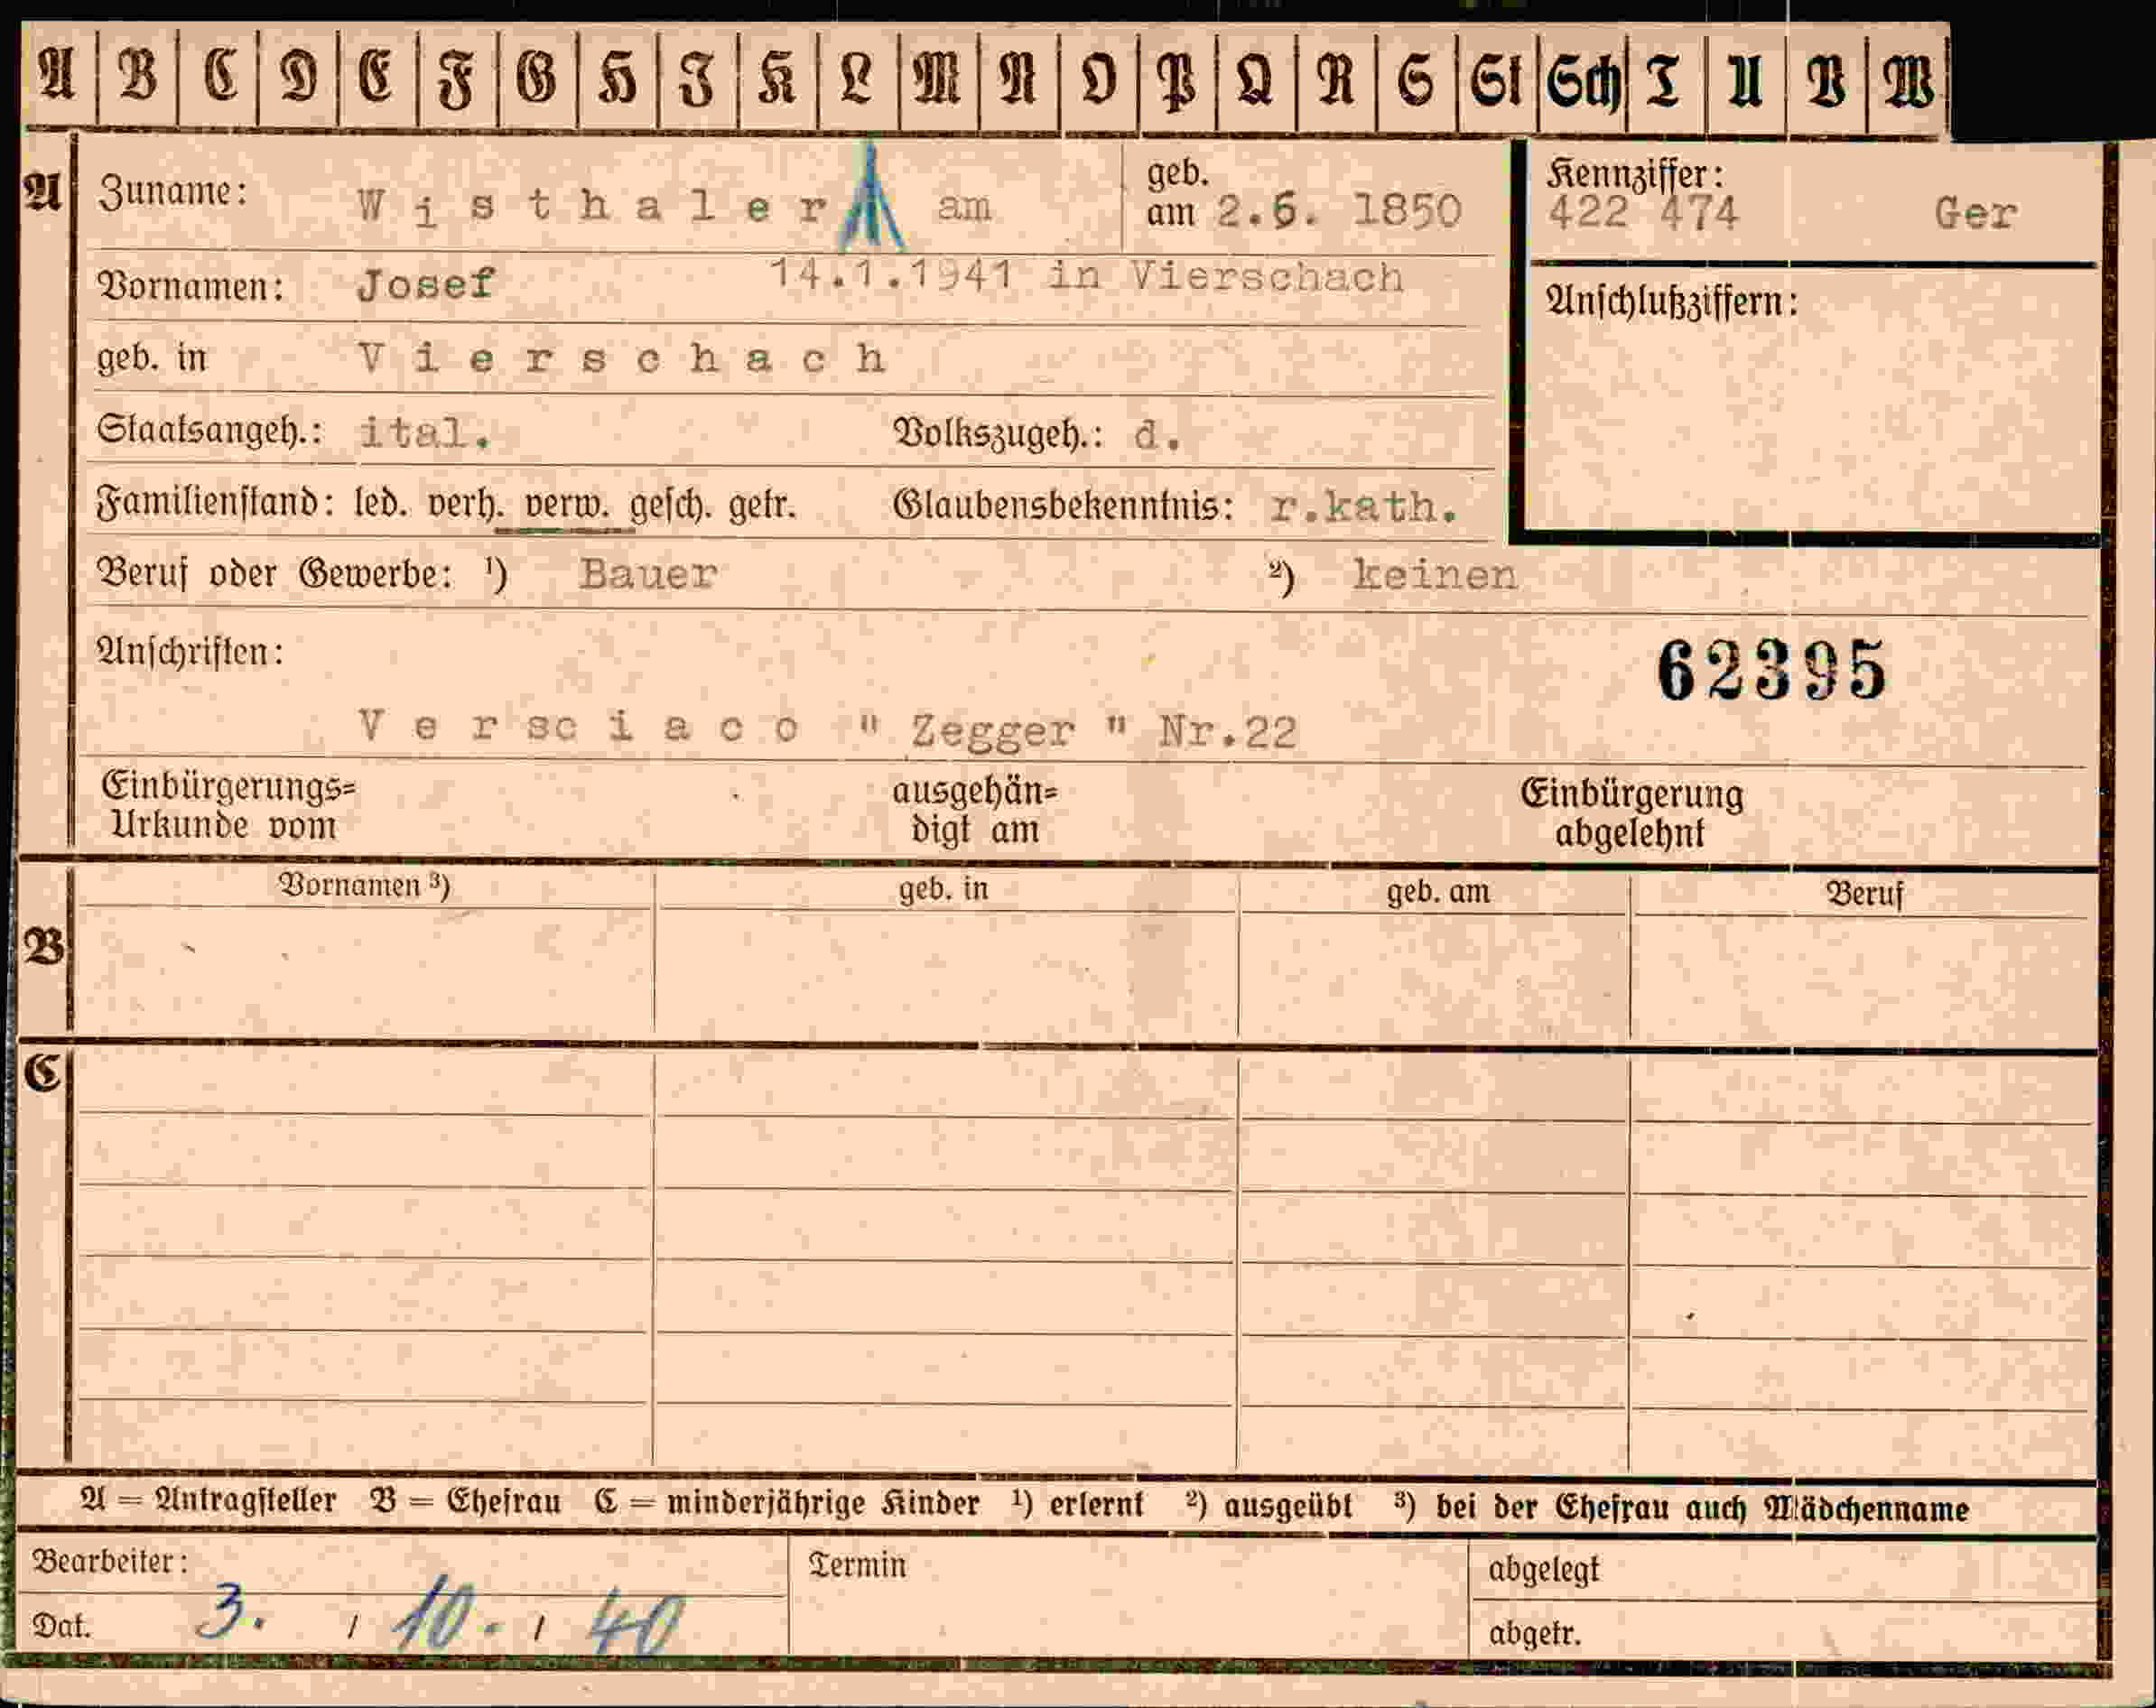 A B C D E F G H I K L M N O P Q R S St Sch T U V W
A Zuname: Wisthaler am geb. am 2.6. 1850 Kennziffer: 422 474 Ger
Vornamen: Josef 14.1.1941 in Vierschach
Anschlußziffern:
geb. in Vierschach
Staatsangeh.: ital. Volkszugeh.: d.
Familienstand: led. verh. verw. gesch. getr. Glaubensbekenntnis: r.kath.
Beruf oder Gewerbe: ¹) Bauer ²) keinen
Anschriften:
62395
Versciaco " Zegger " Nr.22
Einbürgerungs= ausgehän= Einbürgerung
Urkunde vom digt am abgelehnt
Vornamen ³) geb. in geb. am Beruf
B
C
A = Antragsteller B = Ehefrau C = minderjährige Kinder ¹) erlernt ²) ausgeübt ³) bei der Ehefrau auch Mädchenname
Bearbeiter: Termin abgelegt
Dat. 3. / 10. / 40 abgetr.